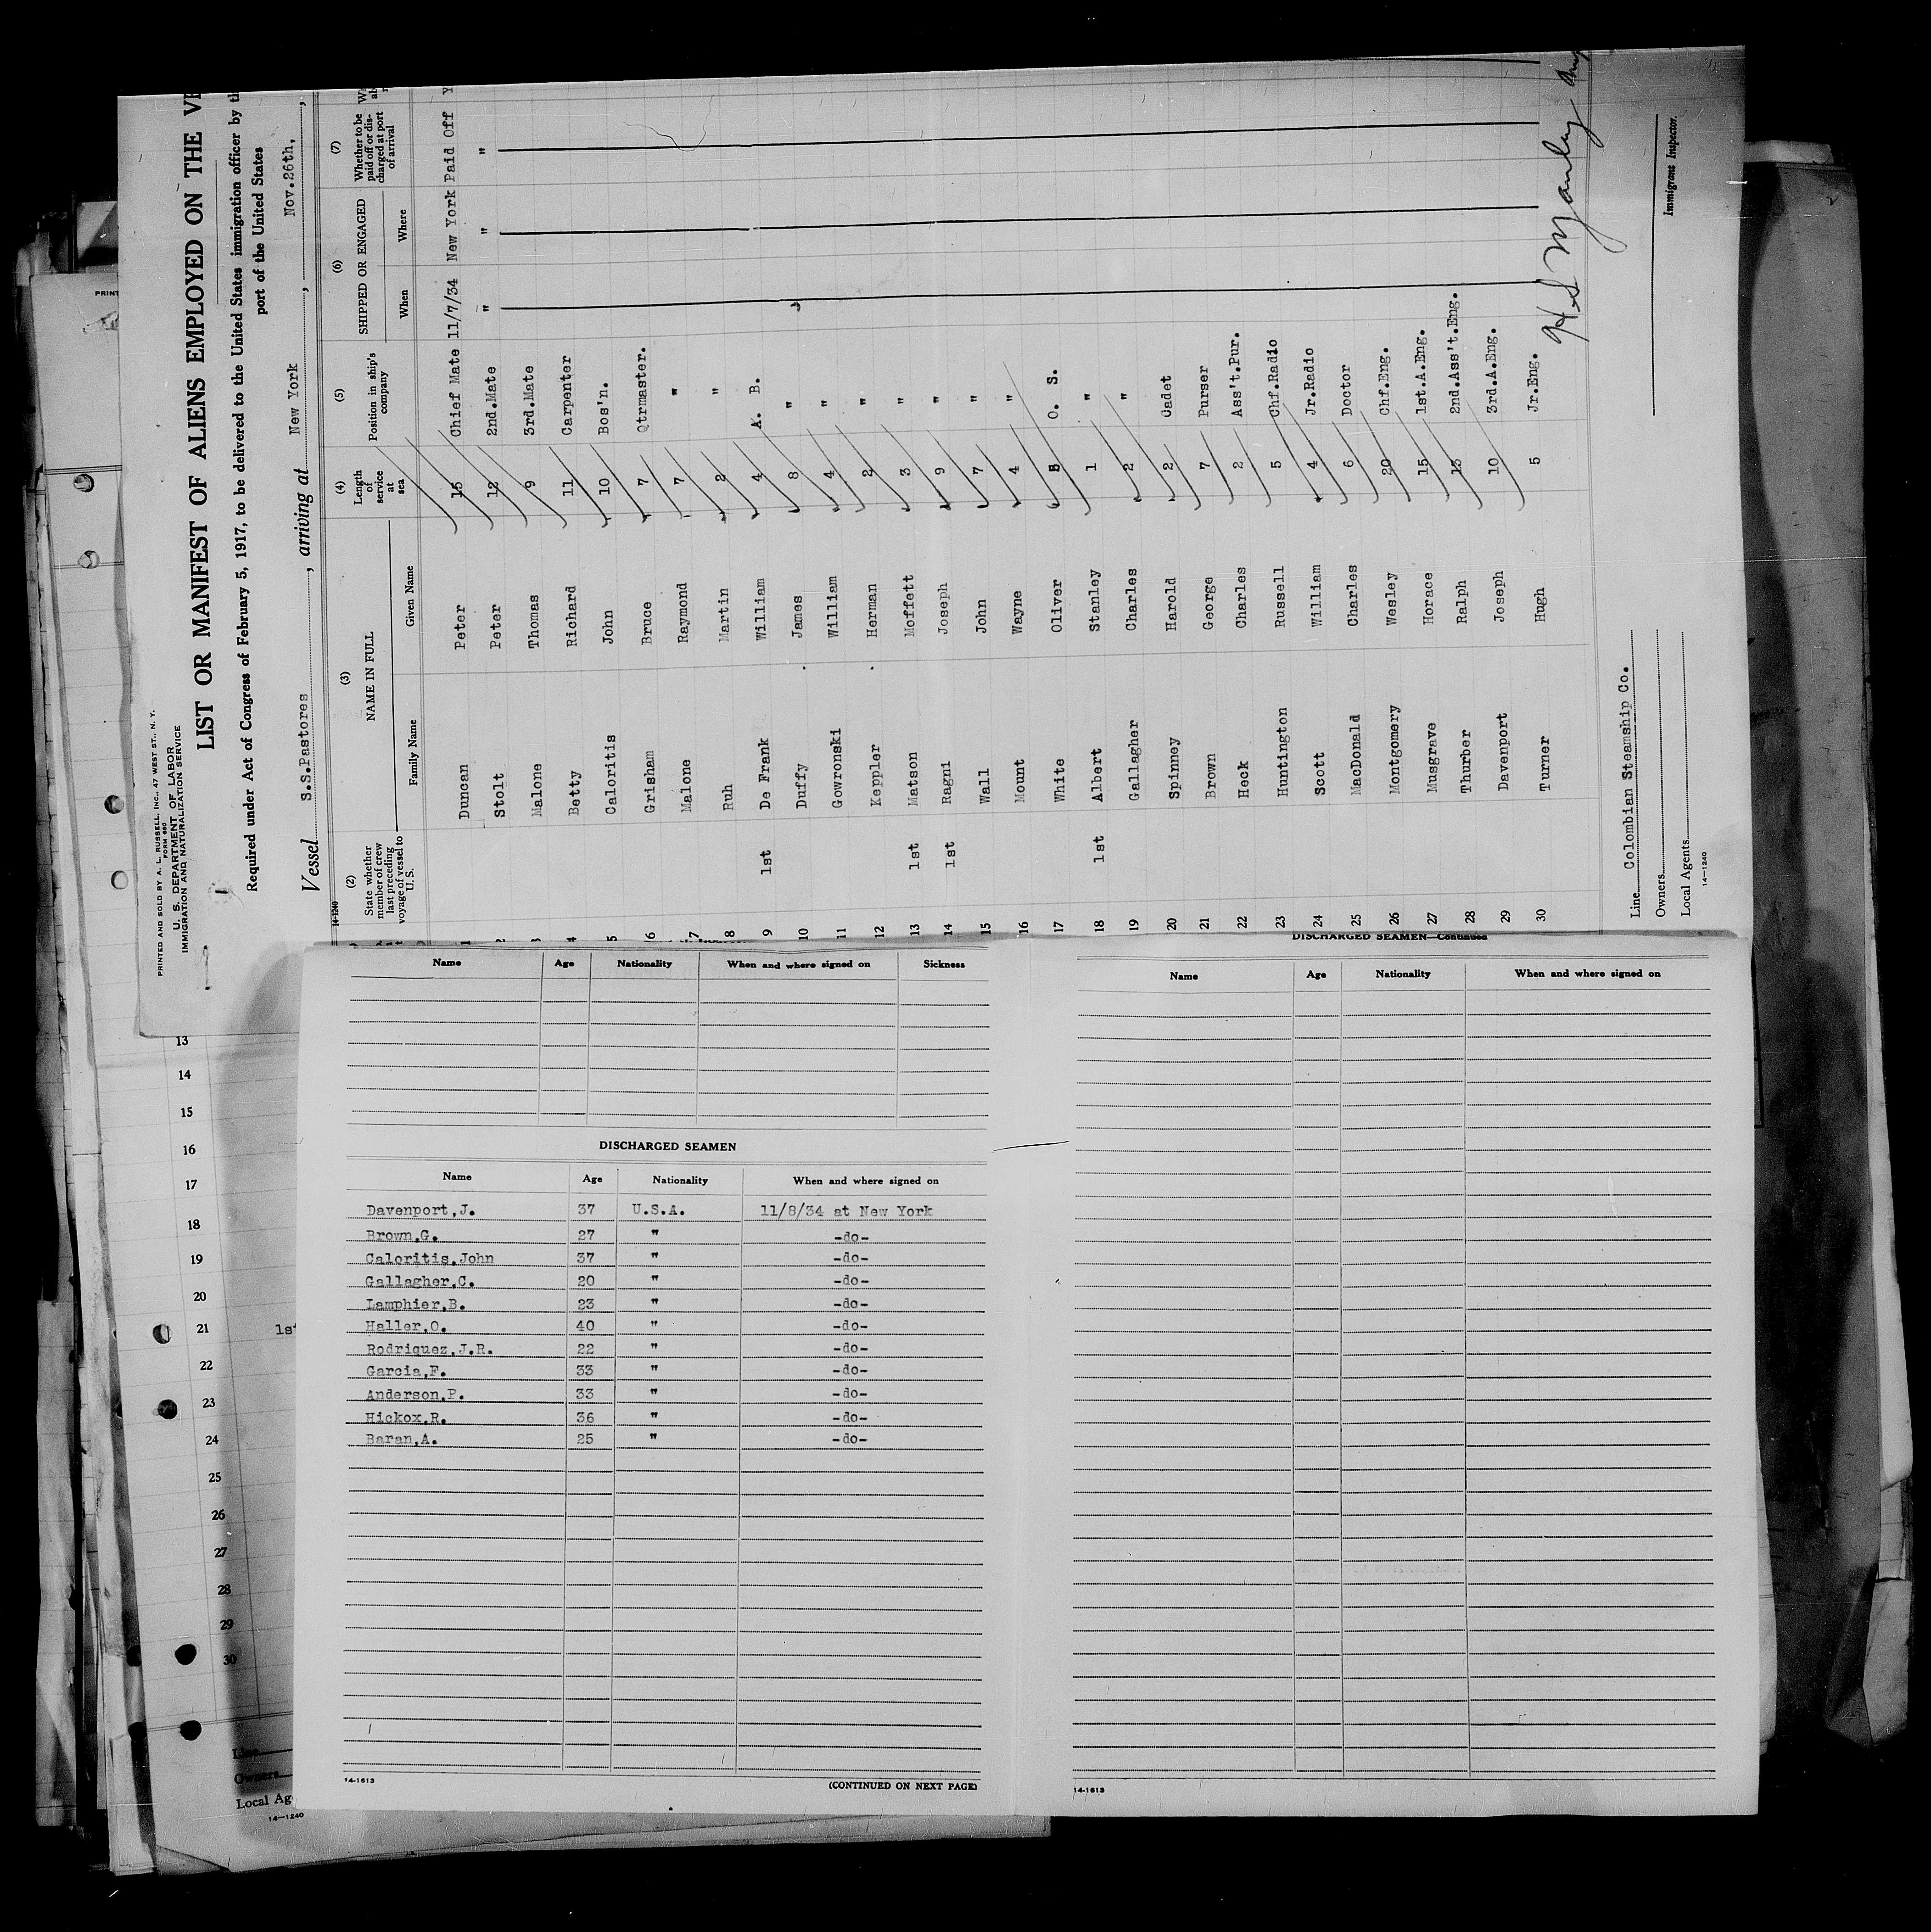 PRINTED AND SOLD BY A. L. RUSSELL, INC., 47 WEST ST., N. Y.
FORM 680
U. S. DEPARTMENT OF LABOR
IMMIGRATION AND NATURALIZATION SERVICE
LIST OR MANIFEST OF ALIENS EMPLOYED ON THE
Required under Act of Congress of February 5, 1917, to be delivered to the United States immigration officer by
port of the United States
Vessel S.S.Pastores, arriving at New York, Nov.26th,
14-1240
(2) (3) (4) (5) (6) (7)
State whether member of crew last preceding voyage of vessel to U. S.
NAME IN FULL
Family Name Given Name
Length of service at sea
Position in ship's company
SHIPPED OR ENGAGED
When Where
Whether to be paid off or discharged at port of arrival
1 Duncan Peter 15 Chief Mate 11/7/34 New York Paid Off Y
2 Stolt Peter 12 2nd.Mate " " "
3 Malone Thomas 9 3rd.Mate
4 Betty Richard 11 Carpenter
5 Caloritis John 10 Bos'n.
6 Grisham Bruce 7 Qtrmaster.
7 Malone Raymond 7 "
8 Ruh Martin 2 "
9 1st De Frank William 4 A. B.
10 Duffy James 8 "
11 Gowronski William 4 "
12 Keppler Herman 2 "
13 1st Matson Moffett 3 "
14 1st Ragni Joseph 9 "
15 Wall John 7 "
16 Mount Wayne 4 "
17 White Oliver O. S.
18 1st Albert Stanley 1 "
19 Gallagher Charles 2 "
20 Spinney Harold 2 Cadet
21 Brown George 7 Purser
22 Heck Charles 2 Ass't.Pur.
23 Huntington Russell 5 Chf.Radio
24 Scott William 4 Jr.Radio
25 MacDonald Charles 6 Doctor
26 Montgomery Wesley 20 Chf.Eng.
27 Musgrave Horace 15 1st.A.Eng.
28 Thurber Ralph 13 2nd.Ass't.Eng.
29 Davenport Joseph 10 3rd.A.Eng.
30 Turner Hugh 5 Jr.Eng.
Line Colombian Steamship Co.
Owners
Local Agents
14-1240
Immigrant Inspector.
Name Age Nationality When and where signed on Sickness
DISCHARGED SEAMEN
Name Age Nationality When and where signed on
Davenport,J. 37 U.S.A. 11/8/34 at New York
Brown,G. 27 " -do-
Caloritis,John 37 " -do-
Gallagher,C. 20 " -do-
Lamphier,B. 23 " -do-
Haller,O. 40 " -do-
Rodriquez,J.R. 22 " -do-
Garcia,F. 33 " -do-
Anderson,P. 33 " -do-
Hickox,R. 36 " -do-
Baran,A. 25 " -do-
14-1613
(CONTINUED ON NEXT PAGE)
DISCHARGED SEAMEN—Continued
Name Age Nationality When and where signed on
14-1613
PRINT
13
14
15
16
17
18
19
20
21 1st
22
23
24
25
26
27
28
29
30
Line
Owners
Local Ag
14-1240